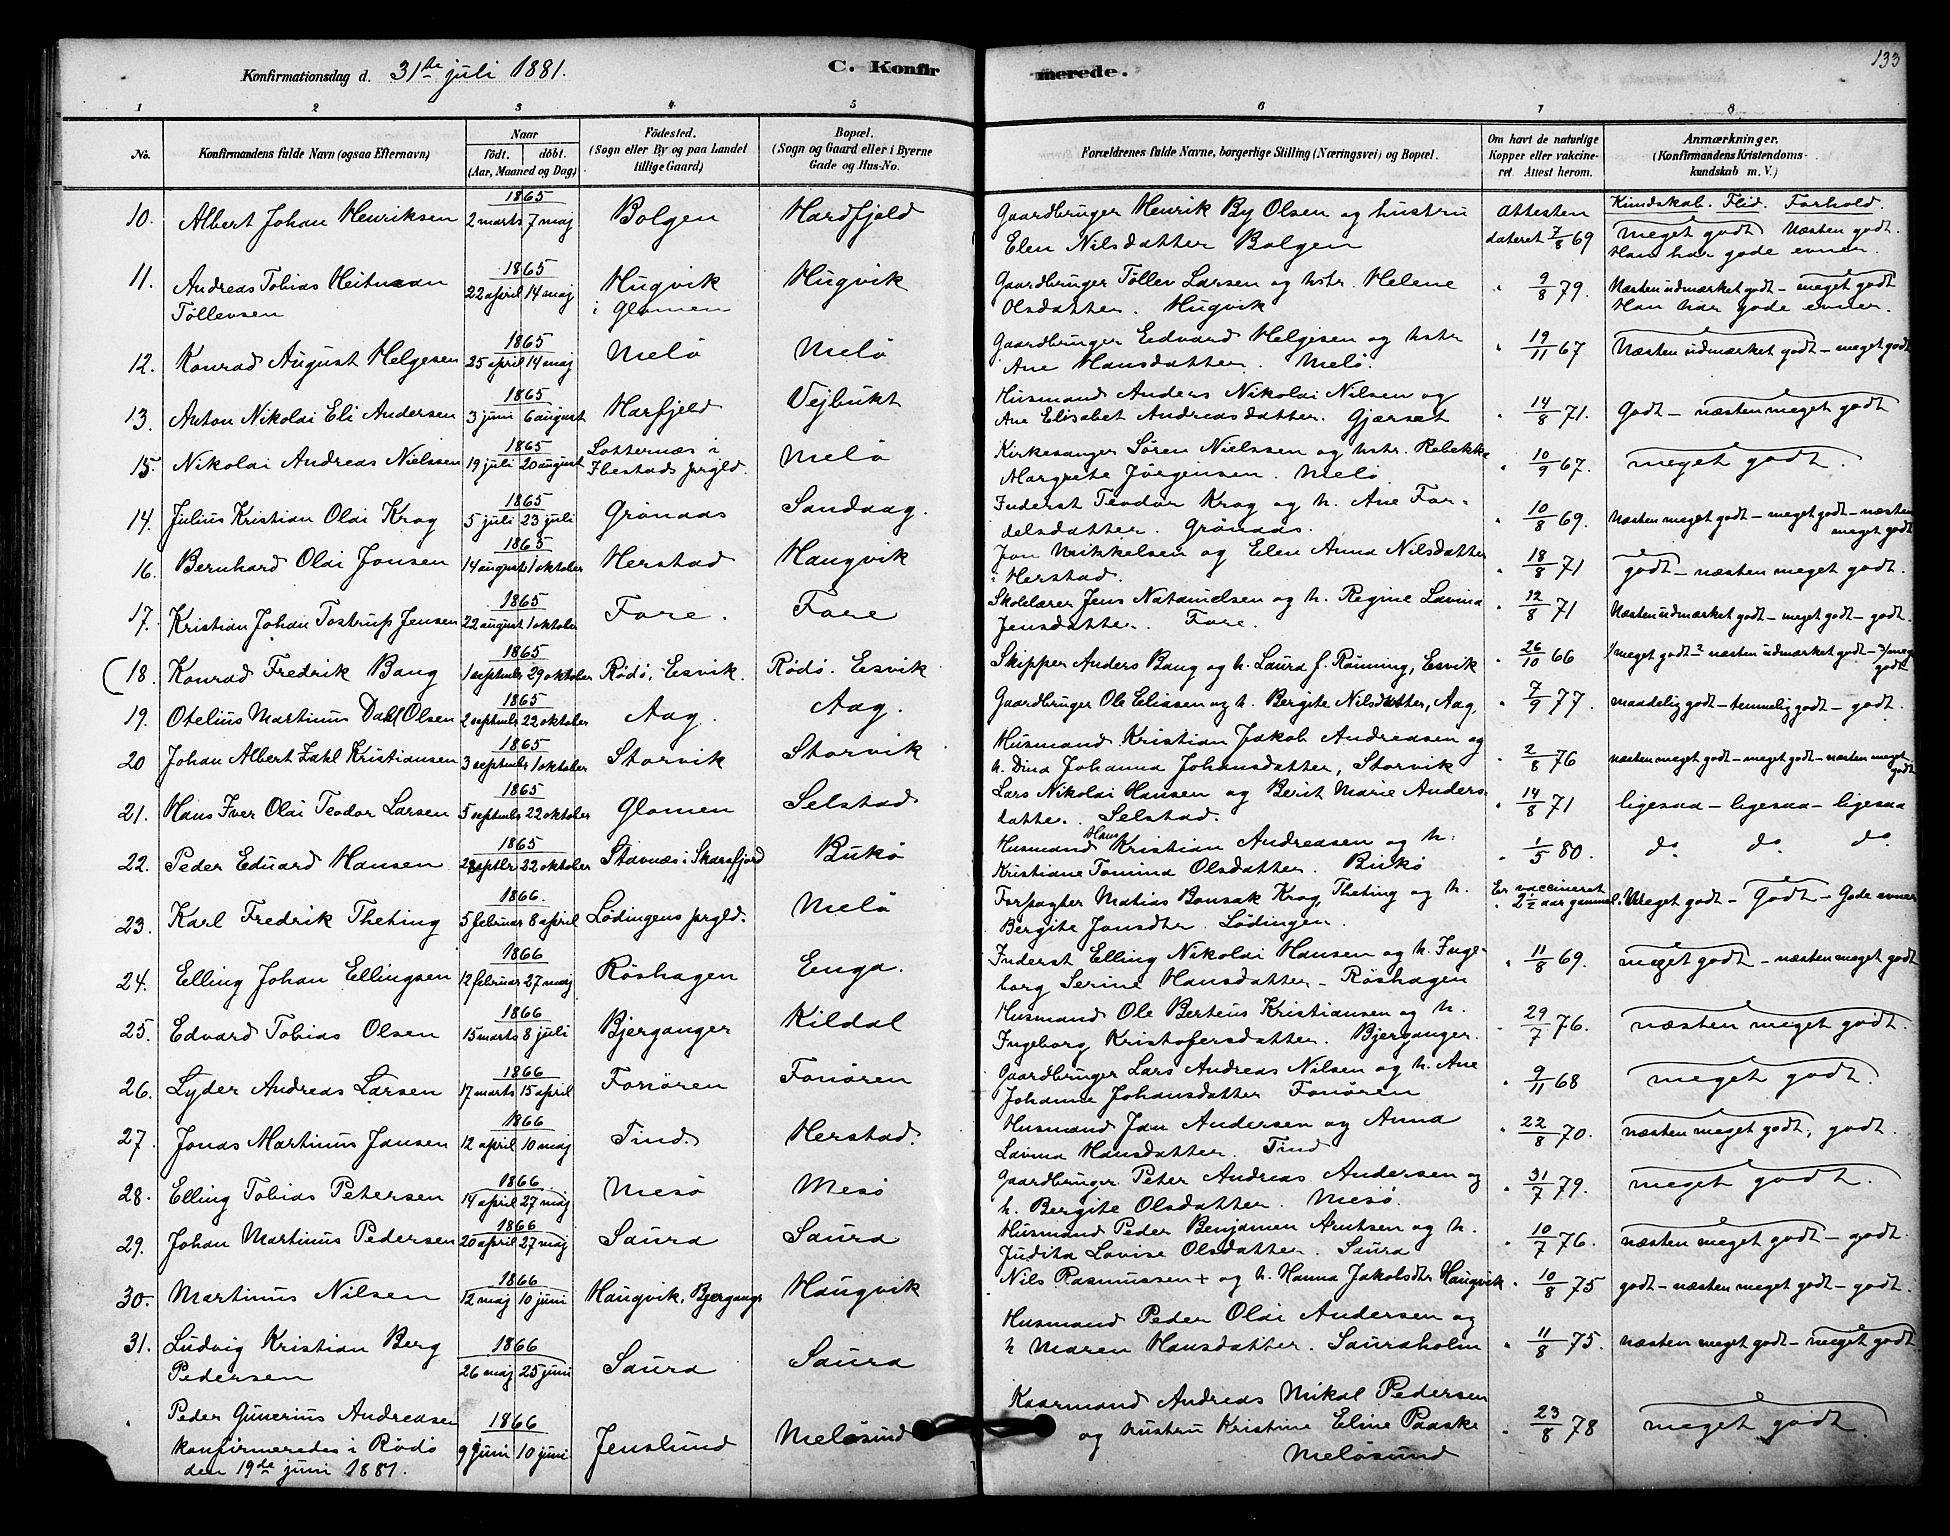 133
Konfirmationsdag d. 31te juli 1881. C. Konfirmerede.
1 2 3 4 5 6 7 8
No. Konfirmandens fulde Navn (ogsaa Efternavn) Naar født. døbt. (Aar, Maaned og Dag) Fødested. (Sogn eller By og paa Landet tillige Gaard) Bopæl. (Sogn og Gaard eller i Byerne Gade og Hus-No. Forældrenes fulde Navne, borgerlige Stilling (Næringsvei) og Bopæl. Om havt de naturlige Kopper eller vakcineret. Attest herom. Anmærkninger. (Konfirmandens Kristendomskundskab m. V.)
Kundskab. Flid. Forhold.
10. Albert Johan Henriksen 1865 2 marts 7 maj Bolgen Hardfjeld Gaardbruger Henrik By Olsen og hustru Elen Nilsdatter Bolgen attesten dateret 7/8 69 meget godt næsten godt. Han har gode evner.
11. Andreas Tobias Heitmann Tøllevsen 1865 22 april 14 maj Hugvik i Glomen Hugvik Gaardbruger Tøllev Larsen og hstr. Helene Olsdatter. Hugvik " 9/8 79. Næsten udmærket godt – meget godt Han har gode evner.
12. Konrad August Helgesen 1865 25 april 14 maj Melø Melø Gaardbruger Edvard Helgesen og hstr Ane Hansdatter. Melø. " 19/11 67 Næsten udmærket godt – meget godt
13. Anton Nikolai Eli Andersen 1865 3 juni 6 august Harfjeld Vejbukt Husmand Anders Nikolai Nilsen og Ane Elisabet Andreasdatter. Gjerset " 14/8 71. Godt – næsten meget godt
15. Nikolai Andreas Nielssen 1865 19 juli 20 august Lotternæs i Ibestads prgld. Melø Kirkesanger Søren Nielssen og hstr. Rebekka Margrete Jørgensen. Melø " 10/9 67. meget godt.
14. Julius Kristian Olai Krog 1865 5 juli 23 juli Grønaas Sandaag. Inderst Teodor Krog og h. Ane Fordelsdatter. Grønaas. " 10/8 69. Næsten meget godt – meget godt – næsten meget godt
16. Bernhard Olai Jonsen 1865 14 august 1 oktober Herstad Haugvik Jon Mikkelsen og Elen Anna Nilsdatter i Herstad. " 18/8 71 godt – næsten meget godt.
17. Kristian Johan Tostrup Jensen 1865 22 august 1 oktober Fore. Fore Skolelærer Jens Natanielsen og h. Regine Lavina Jensdatter. Fore. " 12/8 71 Næsten udmærket godt – meget godt – godt.
(18. Konrad Fredrik Bang 1865 1 septembr 29 oktober Rødø, Esvik. Rødø. Esvik Skipper Anders Bang og h. Laura f. Rønning, Esvik " 26/10 66 meget godt – næsten udmærket godt – meget godt
19. Otelius Martinus Dahl Olsen 1865 2 septembr 22 oktober Aag. Aag. Gaardbruger Ole Eliasen og h. Bergite Nilsdatter, Aag. " 7/9 77. maadelig godt – temmelig godt – godt.
20 Johan Albert Zahl Kristiansen 1865 3 septembr 1 oktober Storvik Storvik Husmand Kristian Jakob Andreasen og h. Dina Johanna Johansdatter, Storvik " 2/8 76 næsten meget godt – meget godt – næsten meget godt
21. Hans Iver Olai Teodor Larsen 1865 5 septembr 22 oktober Glomen Selstad Lars Nikolai Hansen og Berit Marie Andersdatter. Selstad. " 14/8 71 ligesaa – ligesaa – ligesaa
22. Peder Eduard Hansen 1865 septbr 22 oktober Stavnæs i Skarsfjord Bukø Husmand Hans Kristian Andreasen og h. Kristiane Tomina Olsdatter. Bukø " 1/5 80. do do do
23. Karl Fredrik Theting 1866. 5 februar 8 april Lødingens prgld. Melø Forpagter Matias Bonsak Krog, Theting og h. Bergite Jonsdtr. Lødingen. Er vaccineret 2½ aar gammel. Meget godt – Godt – Gode evner
24. Elling Johan Ellingsen 1866 12 februar 27 maj Røshagen Enga. Inderst Elling Nikolai Hansen og h. Ingeborg Serine Hansdatter – Røshagen " 11/8 69. meget godt – næsten meget godt
25. Edvard Tobias Olsen 1866 15 marts 8 juli Bjerganger Kildal Husmand Ole Berteus Kristiansen og h. Ingeborg Kristofersdatter. Bjerganger. " 29/7 76. næsten meget godt.
26. Lyder Andreas Larsen 1866 17 marts 15 april Fonøren Fonøren Gaardbruger Lars Andreas Nilsen og h. Ane Johanne Johansdatter Fonøren " 9/11 68 meget godt.
27. Jonas Martinus Jansen 1866 12 april 10 maj Tind. Herstad. Husmand Jan Andersen og Anna Lavina Hansdatter. Tind " 22/8 70. næsten meget godt, godt.
28. Elling Tobias Petersen 1866. 14 april 27 maj Mesø Mesø Gaardbrugr. Peter Andreas Andersen og h. Bergite Olsdatter. Mesø. " 31/7 79. meget godt.
29. Johan Martinus Pedersen 1866 20 april 27 maj Saura Saura Husmand Peder Benjamin Arntsen og h. Judita Lovise Olsdatter. Saura " 10/7 76. næsten meget godt – godt.
30. Martinus Nilsen 1866 12 maj 10 juni Haugvik, Bjergangr Haugvik Nils Rasmussen + og h. Hanna Jakobsdtr Haugvik " 10/8 75 godt – næsten meget godt – godt.
31. Ludvig Kristian Berg Pedersen 1866 26 maj 25 juni Saura Saura Husmand Peder Olai Andersen og h Maren Hansdatter. Sauraholm " 11/8 75. næsten meget godt – meget godt.
" Peder Gunerius Andreasen konfirmeredes i Rødø den 19de juni 1881. 1866 9 juni 10 juni Jenslund Meløsund Kaarmand Andreas Mikal Pedersen og hustru Kristine Eline Paaske Meløsund " 23/8 78 meget godt.